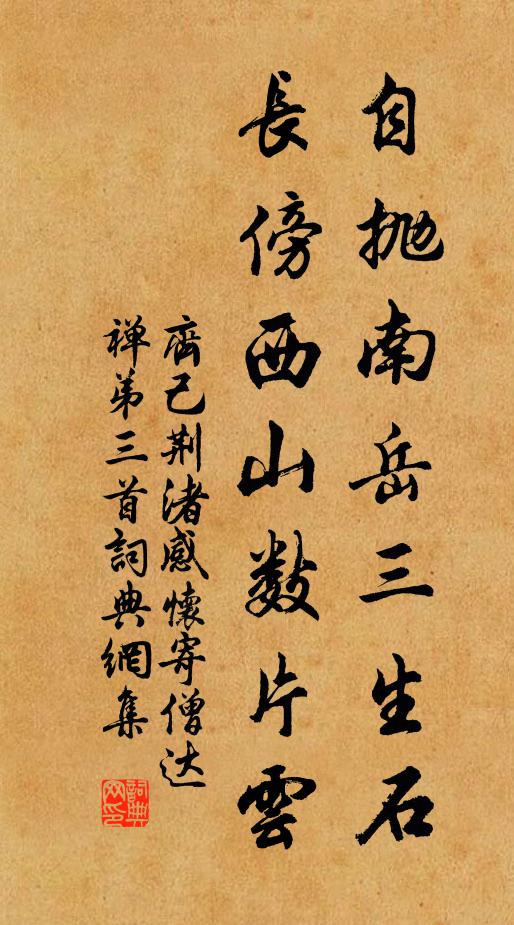 自抛南岳三生石
長傍西山數片雲
齊己荆渚感懷寄僧达
禅弟三首詞典網集
詞典網印